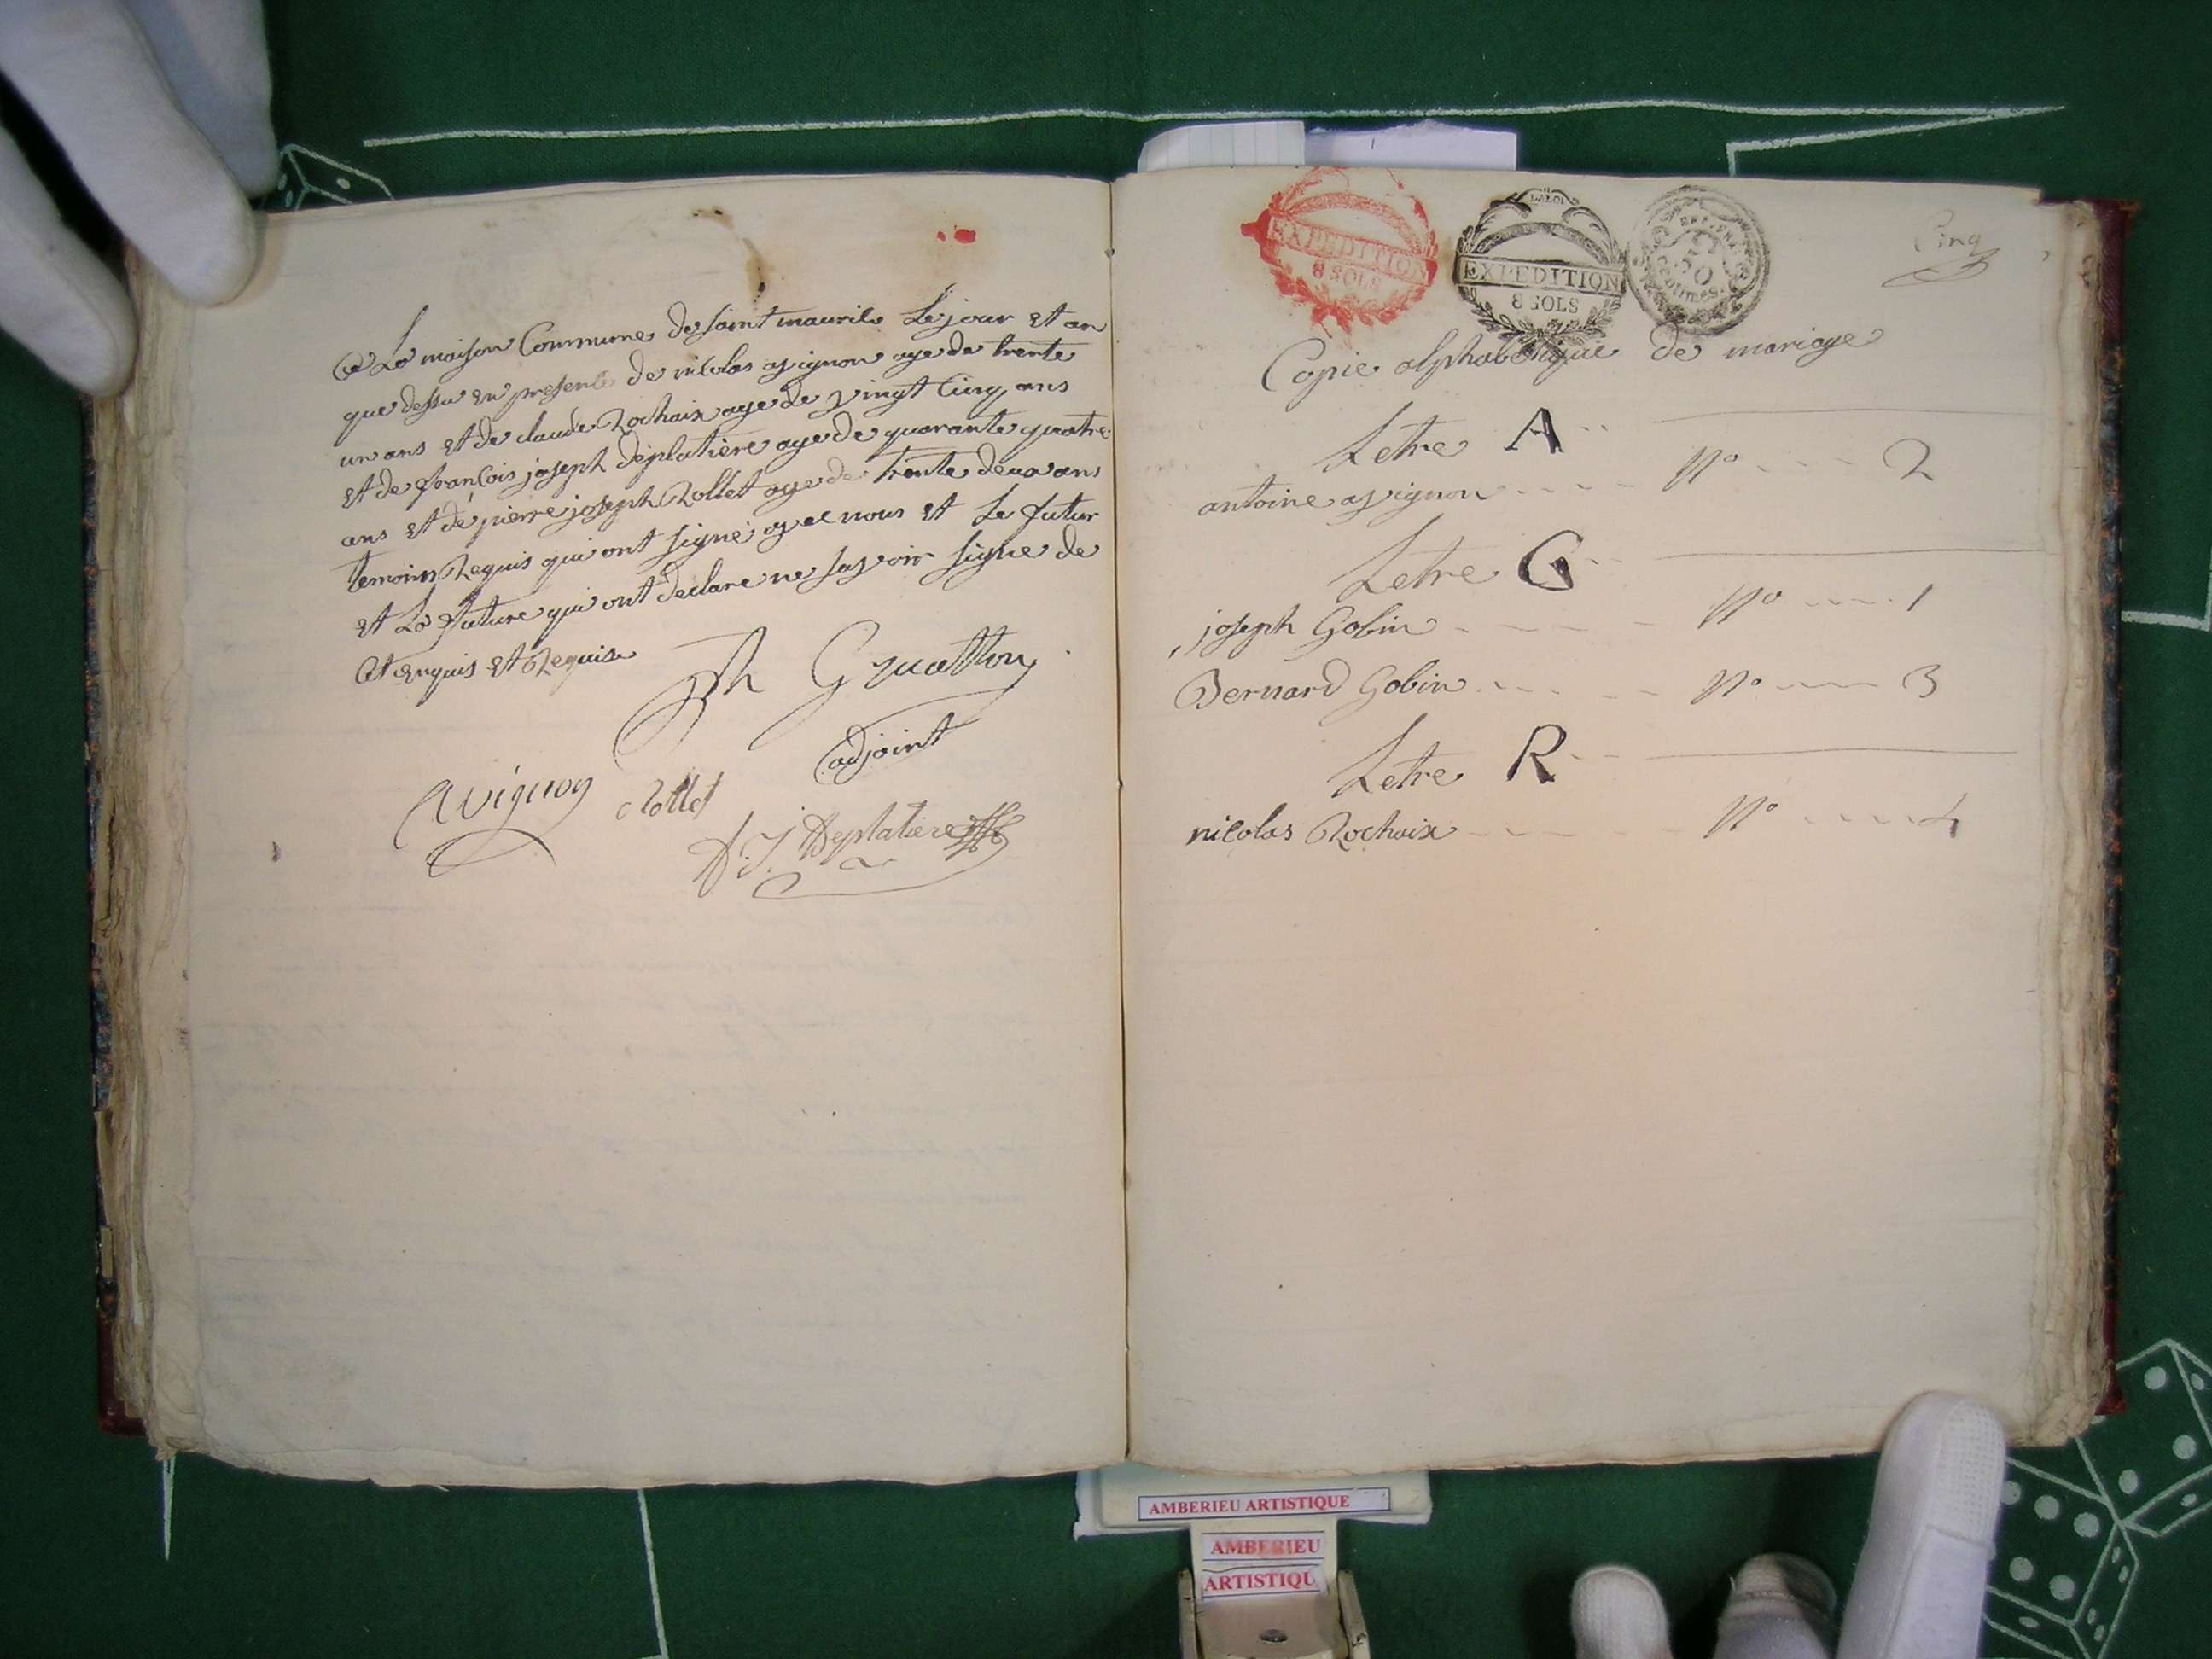 a La maison Commune de saint maurile Le jour et an
que dessu en presente de nicolas avignon age de trente
un ans et de claude Rochaix age de vingt cinq ans
et de françois joseph déplatière age de quarante quatre
ans et de pierre joseph Rollet age de trente deux ans
temoins Requis qui ont signé avec nous et Le futur
et La future qui ont declare ne savoir signe de
et enquis et Requis
Ph Gruatton
adjoint
avignon Rollet
f. j. Deplatiere
EXPEDITION
8 SOLS
LA LOI
EXPEDITION
8 SOLS
REP. FRA
50
centimes
Cinq
Copie alphabetique de mariage
Letre A
antoine avignon N° 2
Letre G
joseph Gobin N° 1
Bernard Gobin N° 3
Letre R
nicolas Rochaix N° 4
AMBERIEU ARTISTIQUE
AMBERIEU
ARTISTIQU